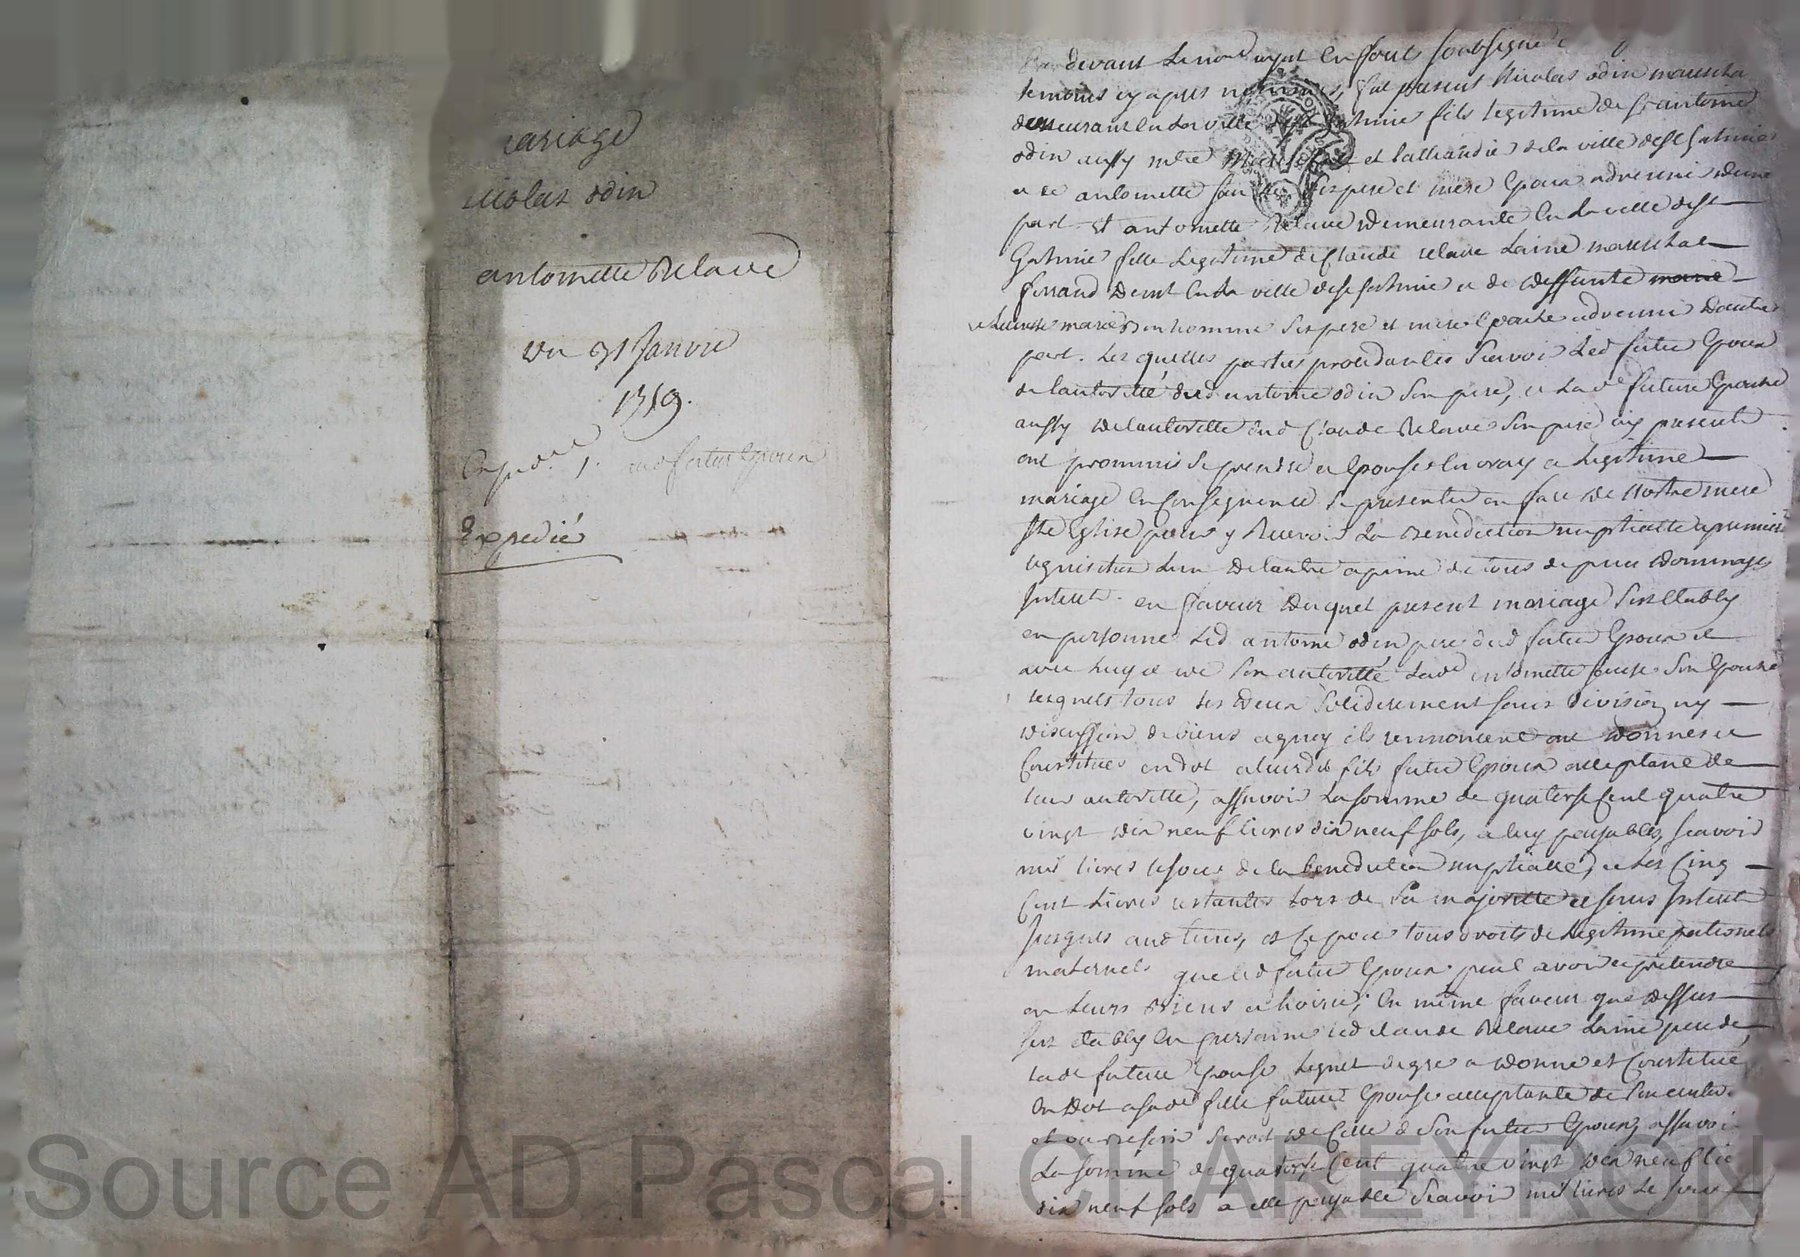 mariage
nicolas odin
antoinette Relave
du 31 Janvier
1759.
futur Epoux
Expedié
devant le no.re royal en fourt soubsigné
temoins cy apres nommés, fut present Nicolas odin mareschal
demeurant en la ville fils legitime de Sr antoine
odin aussy m.tre et de la ville de St Galmier
et de antoinette ses pere et mere Epoux advenir d'une
part. Et antoinette Relave demeurante en la ville de St
Galmier fille Legitime de Claude relave Laine mareschal
ferrand demt en la ville de St Galmier et de deffunte marie
marie bonhomme ses pere et mere Epouse advenir d'autre
part. Les quelles parties procedantes scavoir Led futur Epoux
de lautorité dud antoine odin son pere, et la de future Epouse
aussy de lautoritté dud Claude Relave son pere icy presents
ont prommis se prendre et Epouser en vray et Legitime
mariage En Consequence se presenter en face de Nostre mere
Ste Eglise pour y Recevoir La Benediction nuptialle a premiere
requisition Lun de lautre a peine de tous depens dommages
Interets. en faveur duquel present mariage s'est Etably
en personne Led antoine odin pere dud futur Epoux et
avec luy et de son autoritté Lade antoinette son Epouse
lesquels tous les deux solidairement sans division ny
discussion de biens a quoy ils rennoncent ont donnes et
Constitues en dot a leurdit fils futur Epoux acceptant de
leur autoritté, assavoir La somme de quatorse Cent quatre
vingt dix neuf livres dix neuf sols, a luy payables, scavoir
mil livres le jour de la benediction nuptialle, et Les Cinq
Cent Livres restantes Lors de sa majoritté et sans Interets
Jusques aud tems, et ce pour tous droits de Legitime paternels
maternels que led futur Epoux peut avoir et pretendre
en leurs Biens et hoirie; En même faveur que dessus
s'est etably En personne led claude Relave Laine pere de
lade future Epouse lequel de gre a donne et Constitué
En Dot a sade fille future Epouse acceptante de son autorité
et au besoin seroit de Celle de son futur Epoux, assavoir
La somme de quatorse Cent quatre vingt dix neuf livres
dix neuf sols a elle payable scavoir mil livres le jour
Source AD Pascal CHAREYRON